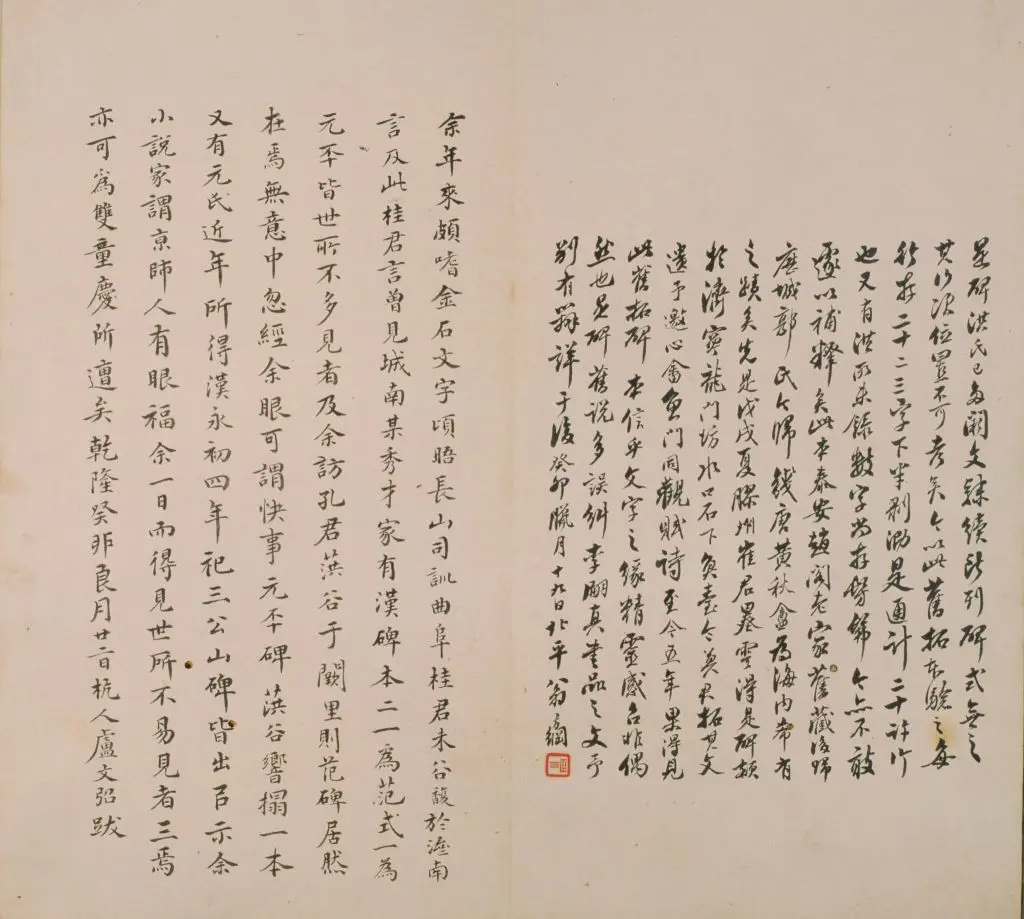 是碑洪氏已多闕文隸續所列碑式無之
其行次位置不可考矣今以此舊拓本驗之每
行存二十二三字下半剝泐是通計二十許行
也又有洪所未錄數字尚存勞歸今亦不敢
遂以補釋矣此本泰安趙閣老家舊藏後歸
歷城郭氏今歸錢唐黃秋盦為海内希有
之蹟矣先是戊戌夏膠州崔君墨雲得是碑額
於濟寧龍門坊水口石下负壹今冀君拓其文
遺予邀心畬魚門同觀賦詩至今五年果得見
此舊拓碑本信乎文字之緣精靈感召非偶
然也是碑舊說多誤糾李嗣真書品之文予
別有辯詳于後癸卯臘月十九日北平翁方綱
余年來頗嗜金石文字頃晤長山司訓曲阜桂君未谷馥於濟南
言及此桂君言曾見城南某秀才家有漢碑本二一為范式一為
元丕皆世所不多見者及余訪孔君葓谷于闕里則范碑居然
在焉無意中忽經余眼可謂快事元丕碑葓谷響搨一本
又有元氏近年所得漢永初四年祀三公山碑皆出㠯示余
小說家謂京師人有眼福余一日而得見世所不易見者三焉
亦可爲雙童慶所遭矣乾隆癸卯良月廿二日杭人盧文弨跋